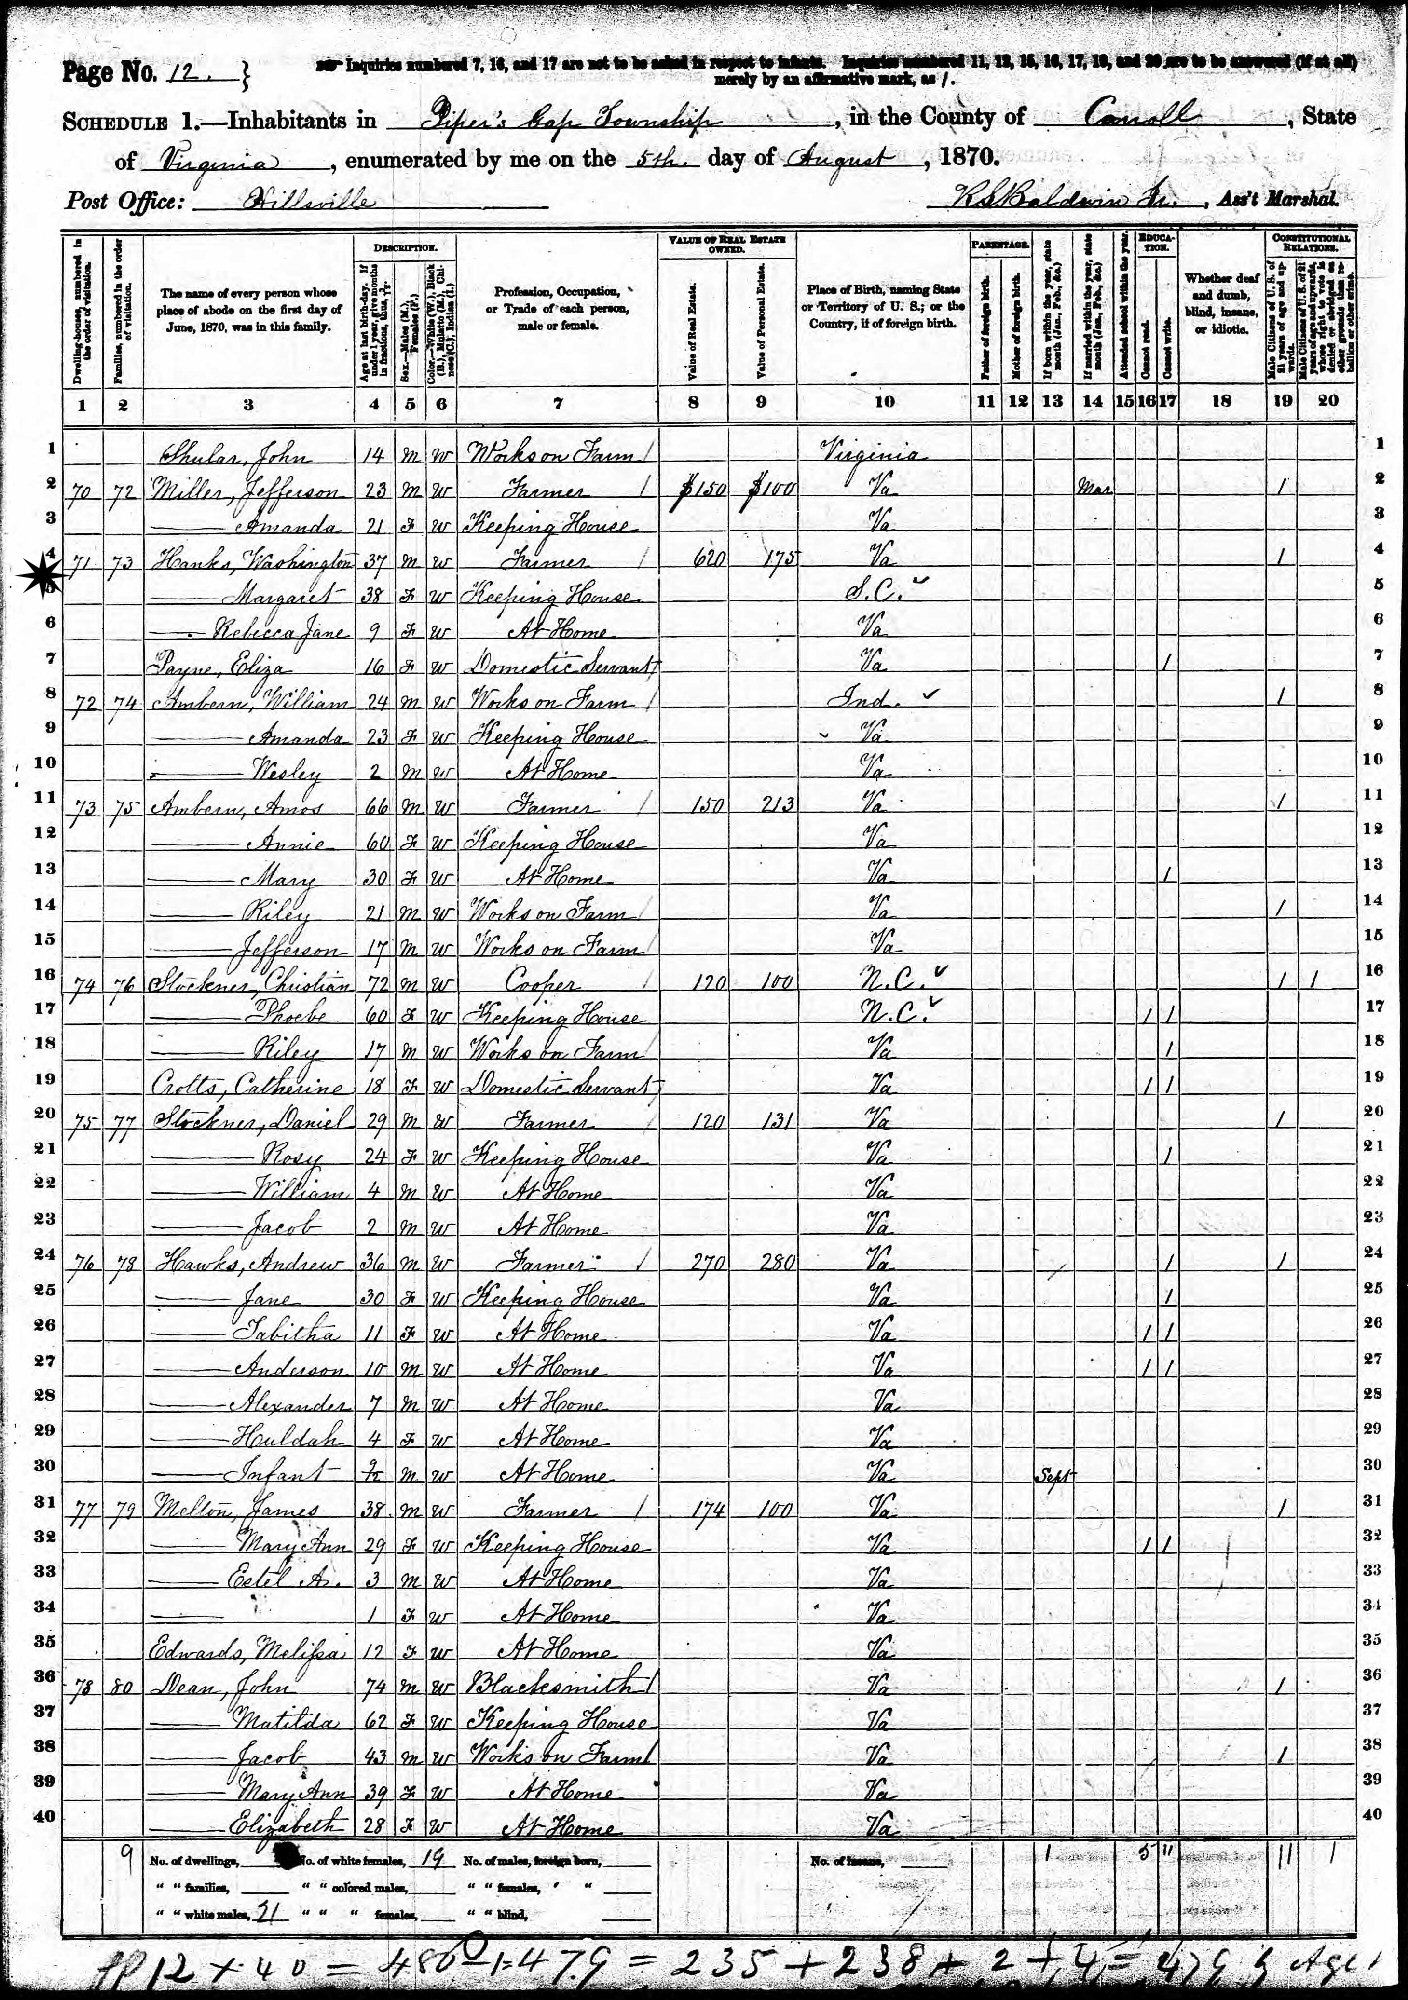 Page No. 12.
Inquiries numbered 7, 16, and 17 are not to be asked in respect to infants. Inquiries numbered 11, 12, 15, 16, 17, 19, and 20 are to be answered (if at all)
merely by an affirmative mark, as /.
SCHEDULE 1.—Inhabitants in Piper's Gap Township, in the County of Carroll, State
of Virginia, enumerated by me on the 5th day of August, 1870.
Post Office: Hillsville Baldwin Jr., Ass't Marshal.
Dwelling-house, numbered in the order of visitation.
Families, numbered in the order of visitation.
The name of every person whose place of abode on the first day of June, 1870, was in this family.
DESCRIPTION.
Age at last birth-day. If under 1 year, give months in fractions, thus, 3/12.
Sex.—Males (M.), Females (F.)
Color.—White (W.), Black (B.), Mulatto (M.), Chinese (C.), Indian (I.)
Profession, Occupation, or Trade of each person, male or female.
VALUE OF REAL ESTATE OWNED.
Value of Real Estate.
Value of Personal Estate.
Place of Birth, naming State or Territory of U. S.; or the Country, if of foreign birth.
PARENTAGE.
Father of foreign birth.
Mother of foreign birth.
If born within the year, state month (Jan., Feb., &c.)
If married within the year, state month (Jan., Feb., &c.)
EDUCATION.
Attended school within the year.
Cannot read.
Cannot write.
Whether deaf and dumb, blind, insane, or idiotic.
CONSTITUTIONAL RELATIONS.
Male Citizens of U. S. of 21 years of age and upwards.
Male Citizens of U. S. of 21 years of age and upwards, whose right to vote is denied or abridged on other grounds than rebellion or other crime.
1 2 3 4 5 6 7 8 9 10 11 12 13 14 15 16 17 18 19 20
1 Shular, John 14 M W Works on Farm / Virginia 1
2 70 72 Miller, Jefferson 23 M W Farmer / $150 $100 Va Mar 1 2
3 — Amanda 21 F W Keeping House Va 3
4 71 73 Hanks, Washington 37 M W Farmer / 620 175 Va 1 4
5 — Margaret 38 F W Keeping House S.C. ✓ 5
6 — Rebecca Jane 9 F W At Home Va 6
7 Payne, Eliza 16 F W Domestic Servant / Va 1 7
8 72 74 Ambern, William 24 M W Works on Farm / Ind. ✓ 1 8
9 — Amanda 23 F W Keeping House Va 9
10 — Wesley 2 M W At Home Va 10
11 73 75 Ambern, Amos 66 M W Farmer / 150 213 Va 1 11
12 — Annie 60 F W Keeping House Va 12
13 — Mary 30 F W At Home Va 1 13
14 — Riley 21 M W Works on Farm / Va 1 14
15 — Jefferson 17 M W Works on Farm / Va 15
16 74 76 Stockner, Christian 72 M W Cooper / 120 100 N.C. ✓ 1 1 16
17 — Phoebe 60 F W Keeping House N.C. ✓ 1 1 17
18 — Riley 17 M W Works on Farm / Va 1 18
19 Crotts, Catherine 18 F W Domestic Servant / Va 1 1 19
20 75 77 Stockner, Daniel 29 M W Farmer / 120 131 Va 1 20
21 — Rosy 24 F W Keeping House Va 1 21
22 — William 4 M W At Home Va 22
23 — Jacob 2 M W At Home Va 23
24 76 78 Hawks, Andrew 36 M W Farmer / 270 280 Va 1 1 24
25 — Jane 30 F W Keeping House Va 1 25
26 — Tabitha 11 F W At Home Va 1 1 26
27 — Anderson 10 M W At Home Va 1 1 27
28 — Alexander 7 M W At Home Va 28
29 — Huldah 4 F W At Home Va 29
30 — Infant 9/12 M W At Home Va Sept 30
31 77 79 Melton, James 38 M W Farmer / 174 100 Va 1 31
32 — Mary Ann 29 F W Keeping House Va 1 1 32
33 — Estel A. 3 M W At Home Va 33
34 — 1 F W At Home Va 34
35 Edwards, Melissa 12 F W At Home Va 35
36 78 80 Dean, John 74 M W Blacksmith / Va 1 36
37 — Matilda 62 F W Keeping House Va 37
38 — Jacob 43 M W Works on Farm / Va 1 38
39 — Mary Ann 39 F W At Home Va 39
40 — Elizabeth 28 F W At Home Va 40
9 No. of dwellings, No. of white females, 19 No. of males, foreign born, No. of insane, 1 5 11 11 1
" " families, " " colored males, " " females, " "
" " white males, 21 " " " females, " " blind,
12 x 40 = 480 - 1 = 479 = 235 + 238 + 2 + 4 = 479